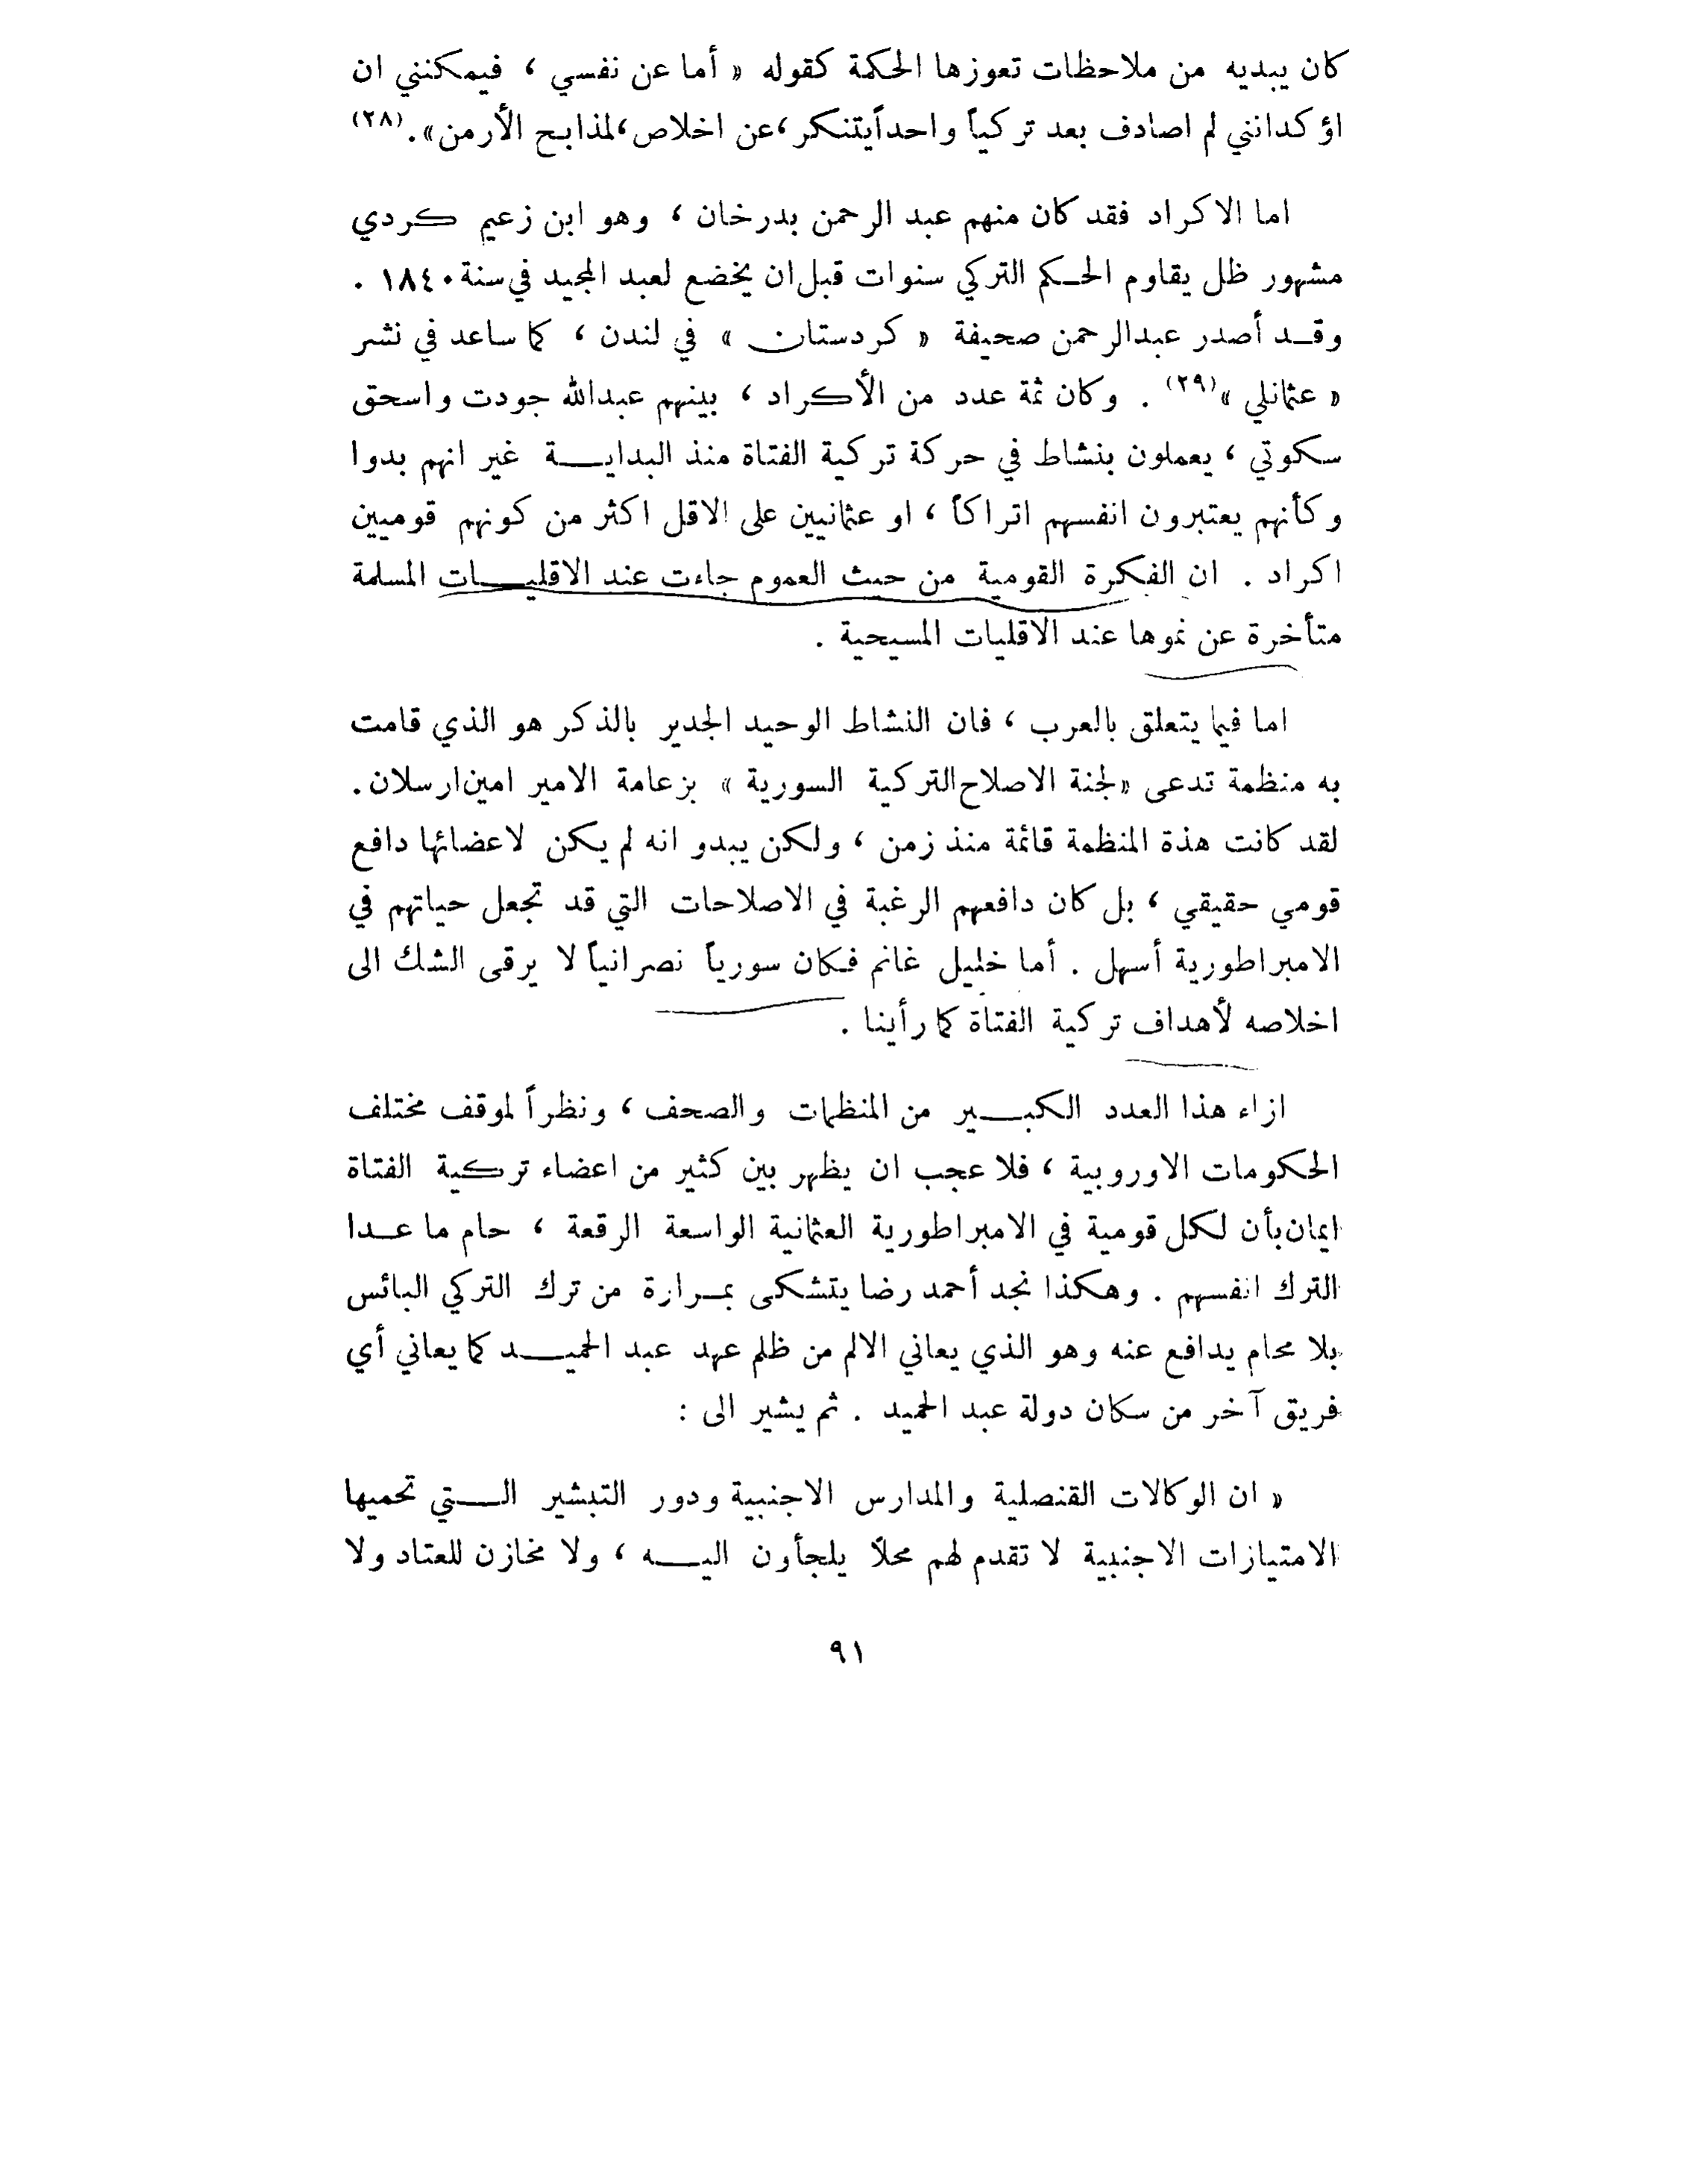 كان يبديه من ملاحظات تعوزها الحكمة كقوله « أما عن نفسي ، فيمكنني ان
اؤكدانني لم اصادف بعد تركياً واحداًيتنكر ،عن اخلاص،لمذابح الأرمن».(٢٨)
اما الاكراد فقد كان منهم عبد الرحمن بدرخان ، وهو ابن زعيم كردي
مشهور ظل يقاوم الحكم التركي سنوات قبل ان يخضع لعبد المجيد في سنة ١٨٤٠ .
وقد أصدر عبدالرحمن صحيفة « كردستان » في لندن ، كما ساعد في نشر
« عثمانلي »(٢٩) . وكان ثمة عدد من الأكراد ، بينهم عبدالله جودت واسحق
سكوتي ، يعملون بنشاط في حركة تركية الفتاة منذ البداية غير انهم بدوا
وكأنهم يعتبرون انفسهم اتراكاً ، او عثمانيين على الاقل اكثر من كونهم قوميين
اكراد . ان الفكرة القومية من حيث العموم جاءت عند الاقليات المسلمة
متأخرة عن نموها عند الاقليات المسيحية .
اما فيما يتعلق بالعرب ، فان النشاط الوحيد الجدير بالذكر هو الذي قامت
به منظمة تدعى «لجنة الاصلاح التركية السورية » بزعامة الامير امين ارسلان.
لقد كانت هذة المنظمة قائمة منذ زمن ، ولكن يبدو انه لم يكن لاعضائها دافع
قومي حقيقي ، بل كان دافعهم الرغبة في الاصلاحات التي قد تجعل حياتهم في
الامبراطورية أسهل . أما خليل غانم فكان سورياً نصرانياً لا يرقى الشك الى
اخلاصه لأهداف تركية الفتاة كما رأينا .
ازاء هذا العدد الكبير من المنظمات والصحف ، ونظراً لموقف مختلف
الحكومات الاوروبية ، فلا عجب ان يظهر بين كثير من اعضاء تركية الفتاة
ايمان بأن لكل قومية في الامبراطورية العثمانية الواسعة الرقعة ، حام ما عدا
الترك انفسهم . وهكذا نجد أحمد رضا يتشكى بمرارة من ترك التركي البائس
بلا محام يدافع عنه وهو الذي يعاني الالم من ظلم عهد عبد الحميد كما يعاني أي
فريق آخر من سكان دولة عبد الحميد . ثم يشير الى :
« ان الوكالات القنصلية والمدارس الاجنبية ودور التبشير التي تحميها
الامتيازات الاجنبية لا تقدم لهم محلاً يلجأون اليه ، ولا مخازن للعتاد ولا
٩١